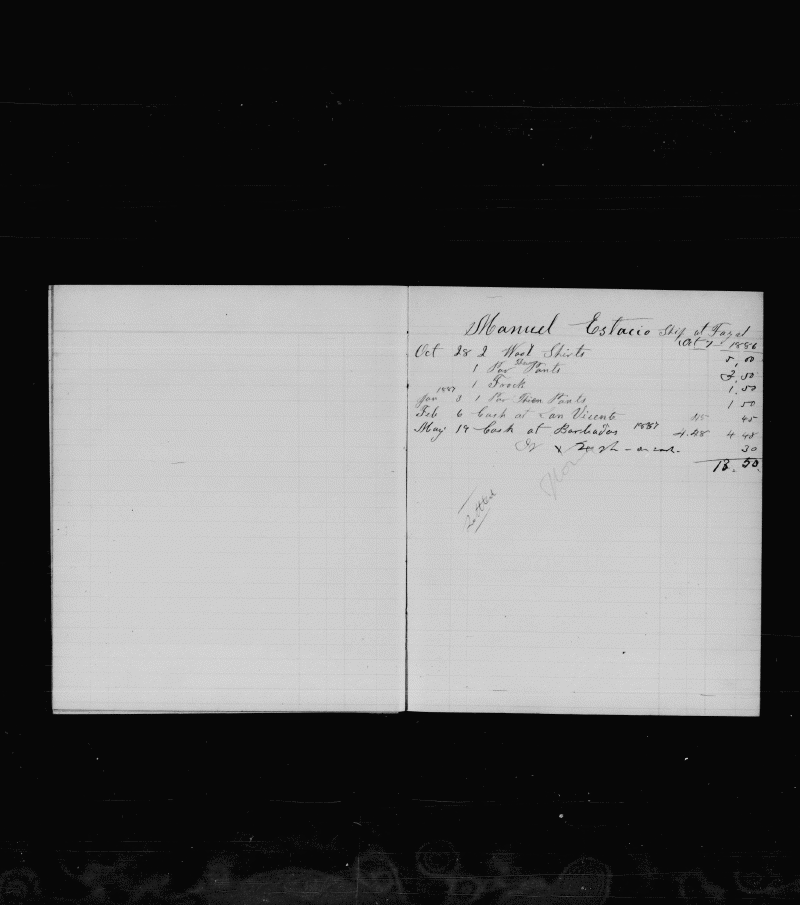 Manuel Estacio Ship at Fayal
Oct 7 1886
Oct 28 2 Wool Shirts 5,00
1 Par Thin Pants 2,50
1 Frock 1,50
1887
Jan 3 1 Par Thien Pants 1 50
Feb 6 Cash at San Vicente 45 45
May 19 Cash at Barbados 1887 4.48 4 48
30
Settled